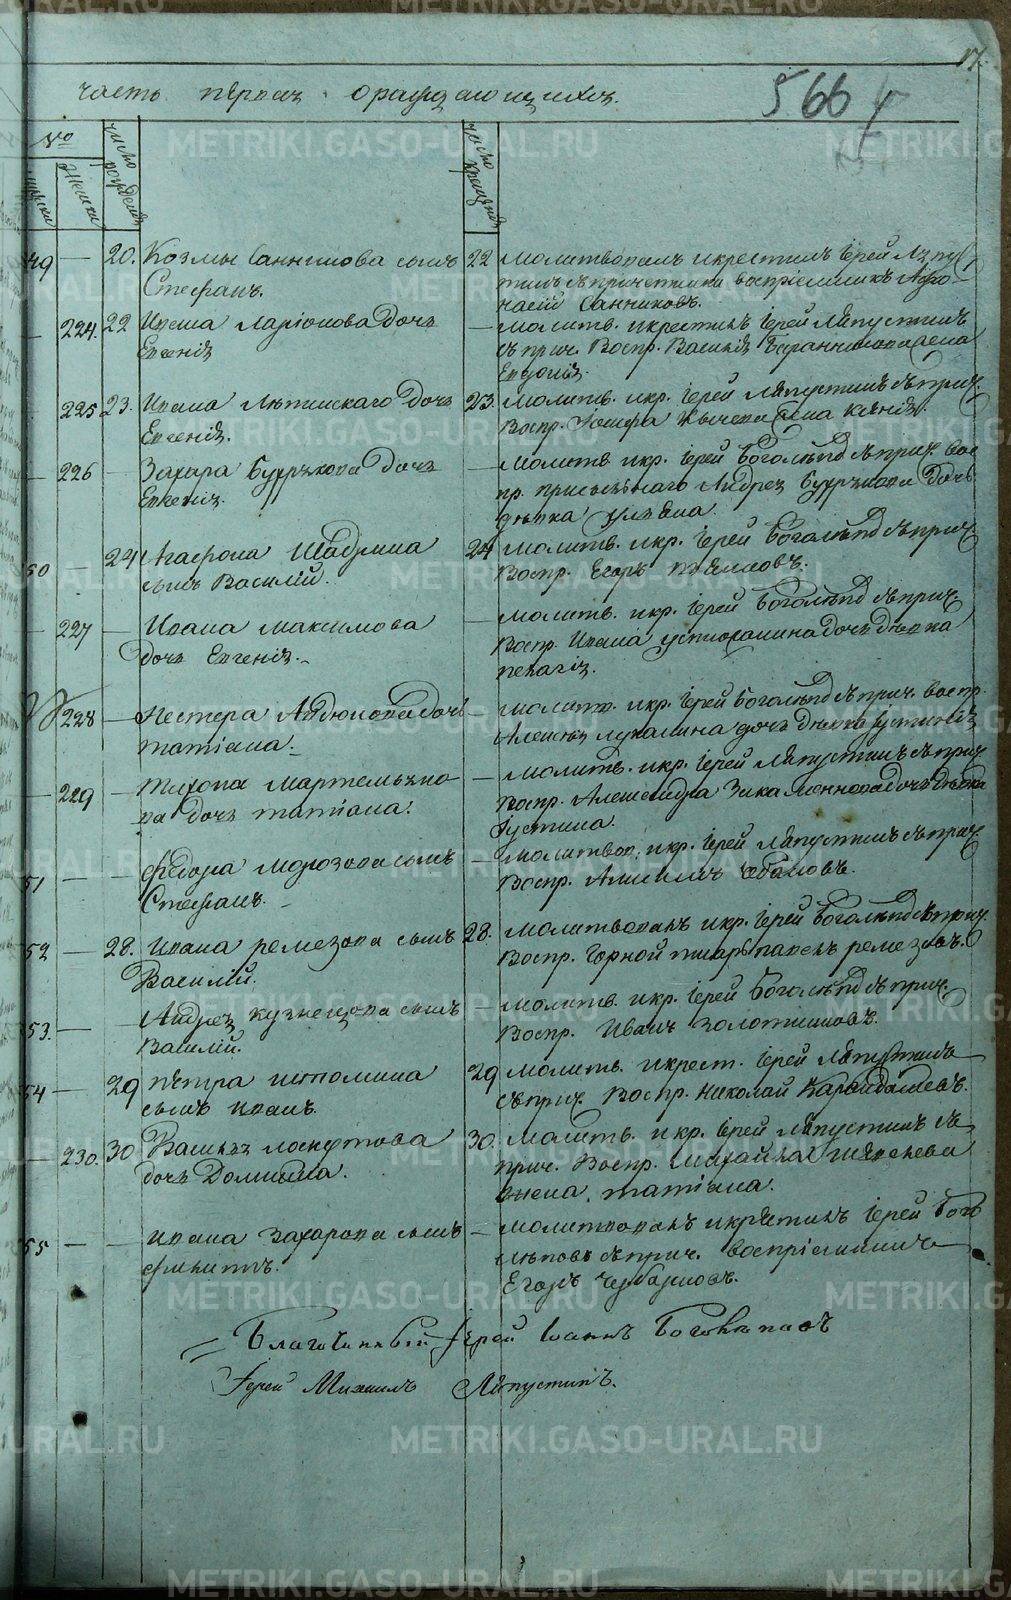 17.
часть первая о раждающихся.
566
№
мужска
женска
число рожденія
число крещенія
49 — 20. Козмы Санникова сынъ
Стефанъ.
22 молитвовалъ и крестилъ Іерей Ляпу
стинъ съ причетники воспріемникъ Афо-
насій Санниковъ.
— 224. 22 Ивана Ларіонова дочь
Евгенія
— молитв. и крестилъ Іерей Ляпустинъ
съ прич. Воспр. Василія жена
Евдокія.
— 225 23. Ивана Лятинскаго дочь
Евгенія.
23. Молитв. икр. Іерей Ляпустинъ съ прич.
Воспр. Іосифа жена Ксенія.
— 226 — Захара дочь
Евгенія.
— молитв. икр. Іерей Боголѣпов съ прич. вос
пр. Андрея дочь
дѣвка Ульяна.
50 — 24 Агафона Шадрина
сынъ Василій.
24 Молитв. икр. Іерей Боголѣпов съ прич.
Воспр. Егоръ
— 227 — Ивана Максимова
дочь Евгенія. —
— молитв. икр. Іерей Боголѣпов съ прич.
Воспр. Ивана дочь дѣвка
пелагія.
— 228 — Нестера Авдюкова дочь
татіана. —
— молитв. икр. Іерей Боголѣпов съ прич. воспр.
Алексѣя Лукалина дочь дѣвка Іустинія
— 229 — Тихона Мартемьяно-
ва дочь татіана.
— молитв. икр. Іерей Ляпустинъ съ прич.
воспр. Александра дочь дѣвка
Іустина.
51 — — Федора Морозова сынъ
Стефанъ. —
— молитвов. икр. Іерей Ляпустинъ съ прич.
Воспр.
52 — 28. Ивана ремезова сынъ
Василій.
28. молитвовалъ икр. Іерей Боголѣпов съ прич.
Воспр. Горной писарь павелъ ремезовъ.
53. — Андрея кузнецова сынъ
Василій.
молитв. икр. Іерей Боголѣпов съ прич.
Воспр. Иванъ Золотниковъ.
54 — 29 петра истомина
сынъ иванъ.
29 молитв. и крест. Іерей Ляпустинъ
съ прич. Воспр. Николай Карандашевъ.
— 230. 30 Василья Лоскутова
дочь Домника.
30. Молитв. и кр. Іерей Ляпустинъ съ
прич. Воспр. Михайла
жена татіана.
55 — — ивана Захарова сынъ
филипъ.
— молитвовалъ и крестилъ Іерей Бого
лѣповъ съ прич. воспріемникъ
Егоръ Чебаковъ.
= Благочинный Іерей Іоаннъ Боголѣповъ
Іерей Михаилъ Ляпустинъ.
METRIKI.GASO-URAL.RU